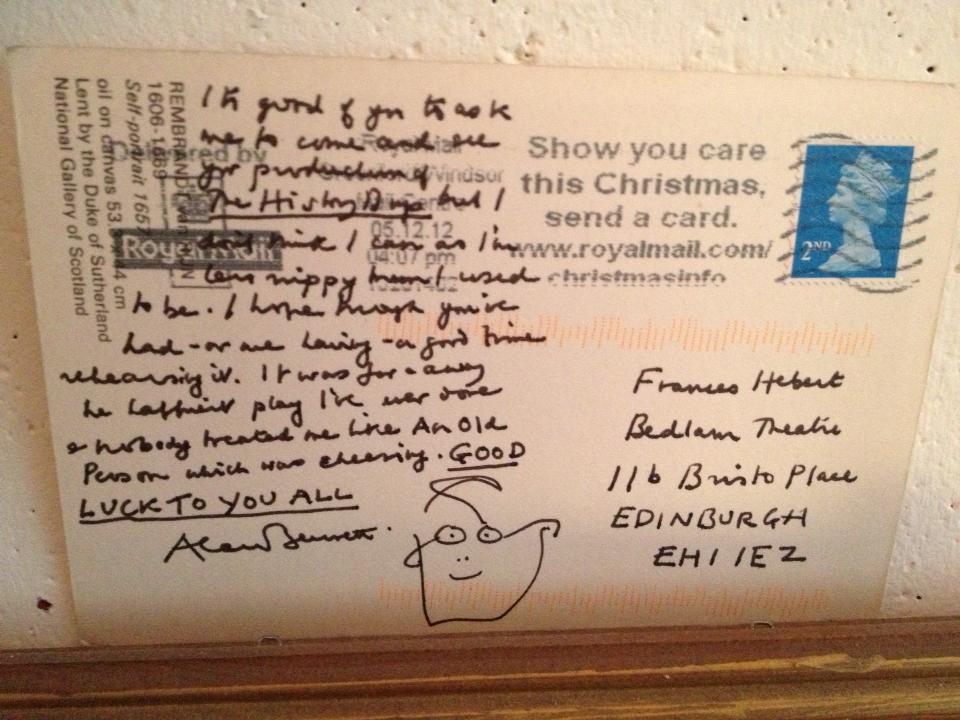 It's good of you to ask
me to come and see
yr production of
The History Boys but I
don't think I can as I'm
less nippy than I used
to be. I hope though you've
had - or are having - a good time
rehearsing it. It was far & away
the happiest play I've ever done
& nobody treated me like An Old
Person which was cheering. GOOD
LUCK TO YOU ALL
Alan Bennett.
REMBRANDT van RIJN
1606-1669
Self-portrait 1657
oil on canvas 53 44 cm
Lent by the Duke of Sutherland
National Gallery of Scotland
Delivered by
Royal Mail
Royal Mail
Windsor
05.12.12
04:07 pm
Show you care
this Christmas,
send a card.
www.royalmail.com/
christmasinfo
2ND
Frances Hebert
Bedlam Theatre
11b Bristo Place
EDINBURGH
EH1 1EZ